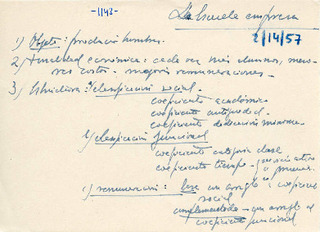 -1/42-
La Escuela empresa
2/14/57
1) Objeto: producir hombres.
2) Finalidad económica: cada vez más alumnos, meno-
res costos - mayores remuneraciones.-
3) Estructura: clasificación social.
coeficiente académico
coeficiente antigüedad
coeficiente
clasificación funcional
coeficiente categoría clase
coeficiente tiempo -
c) remuneración: con arreglo a coeficiente
social
complementado - con arreglo al
coeficiente funcional